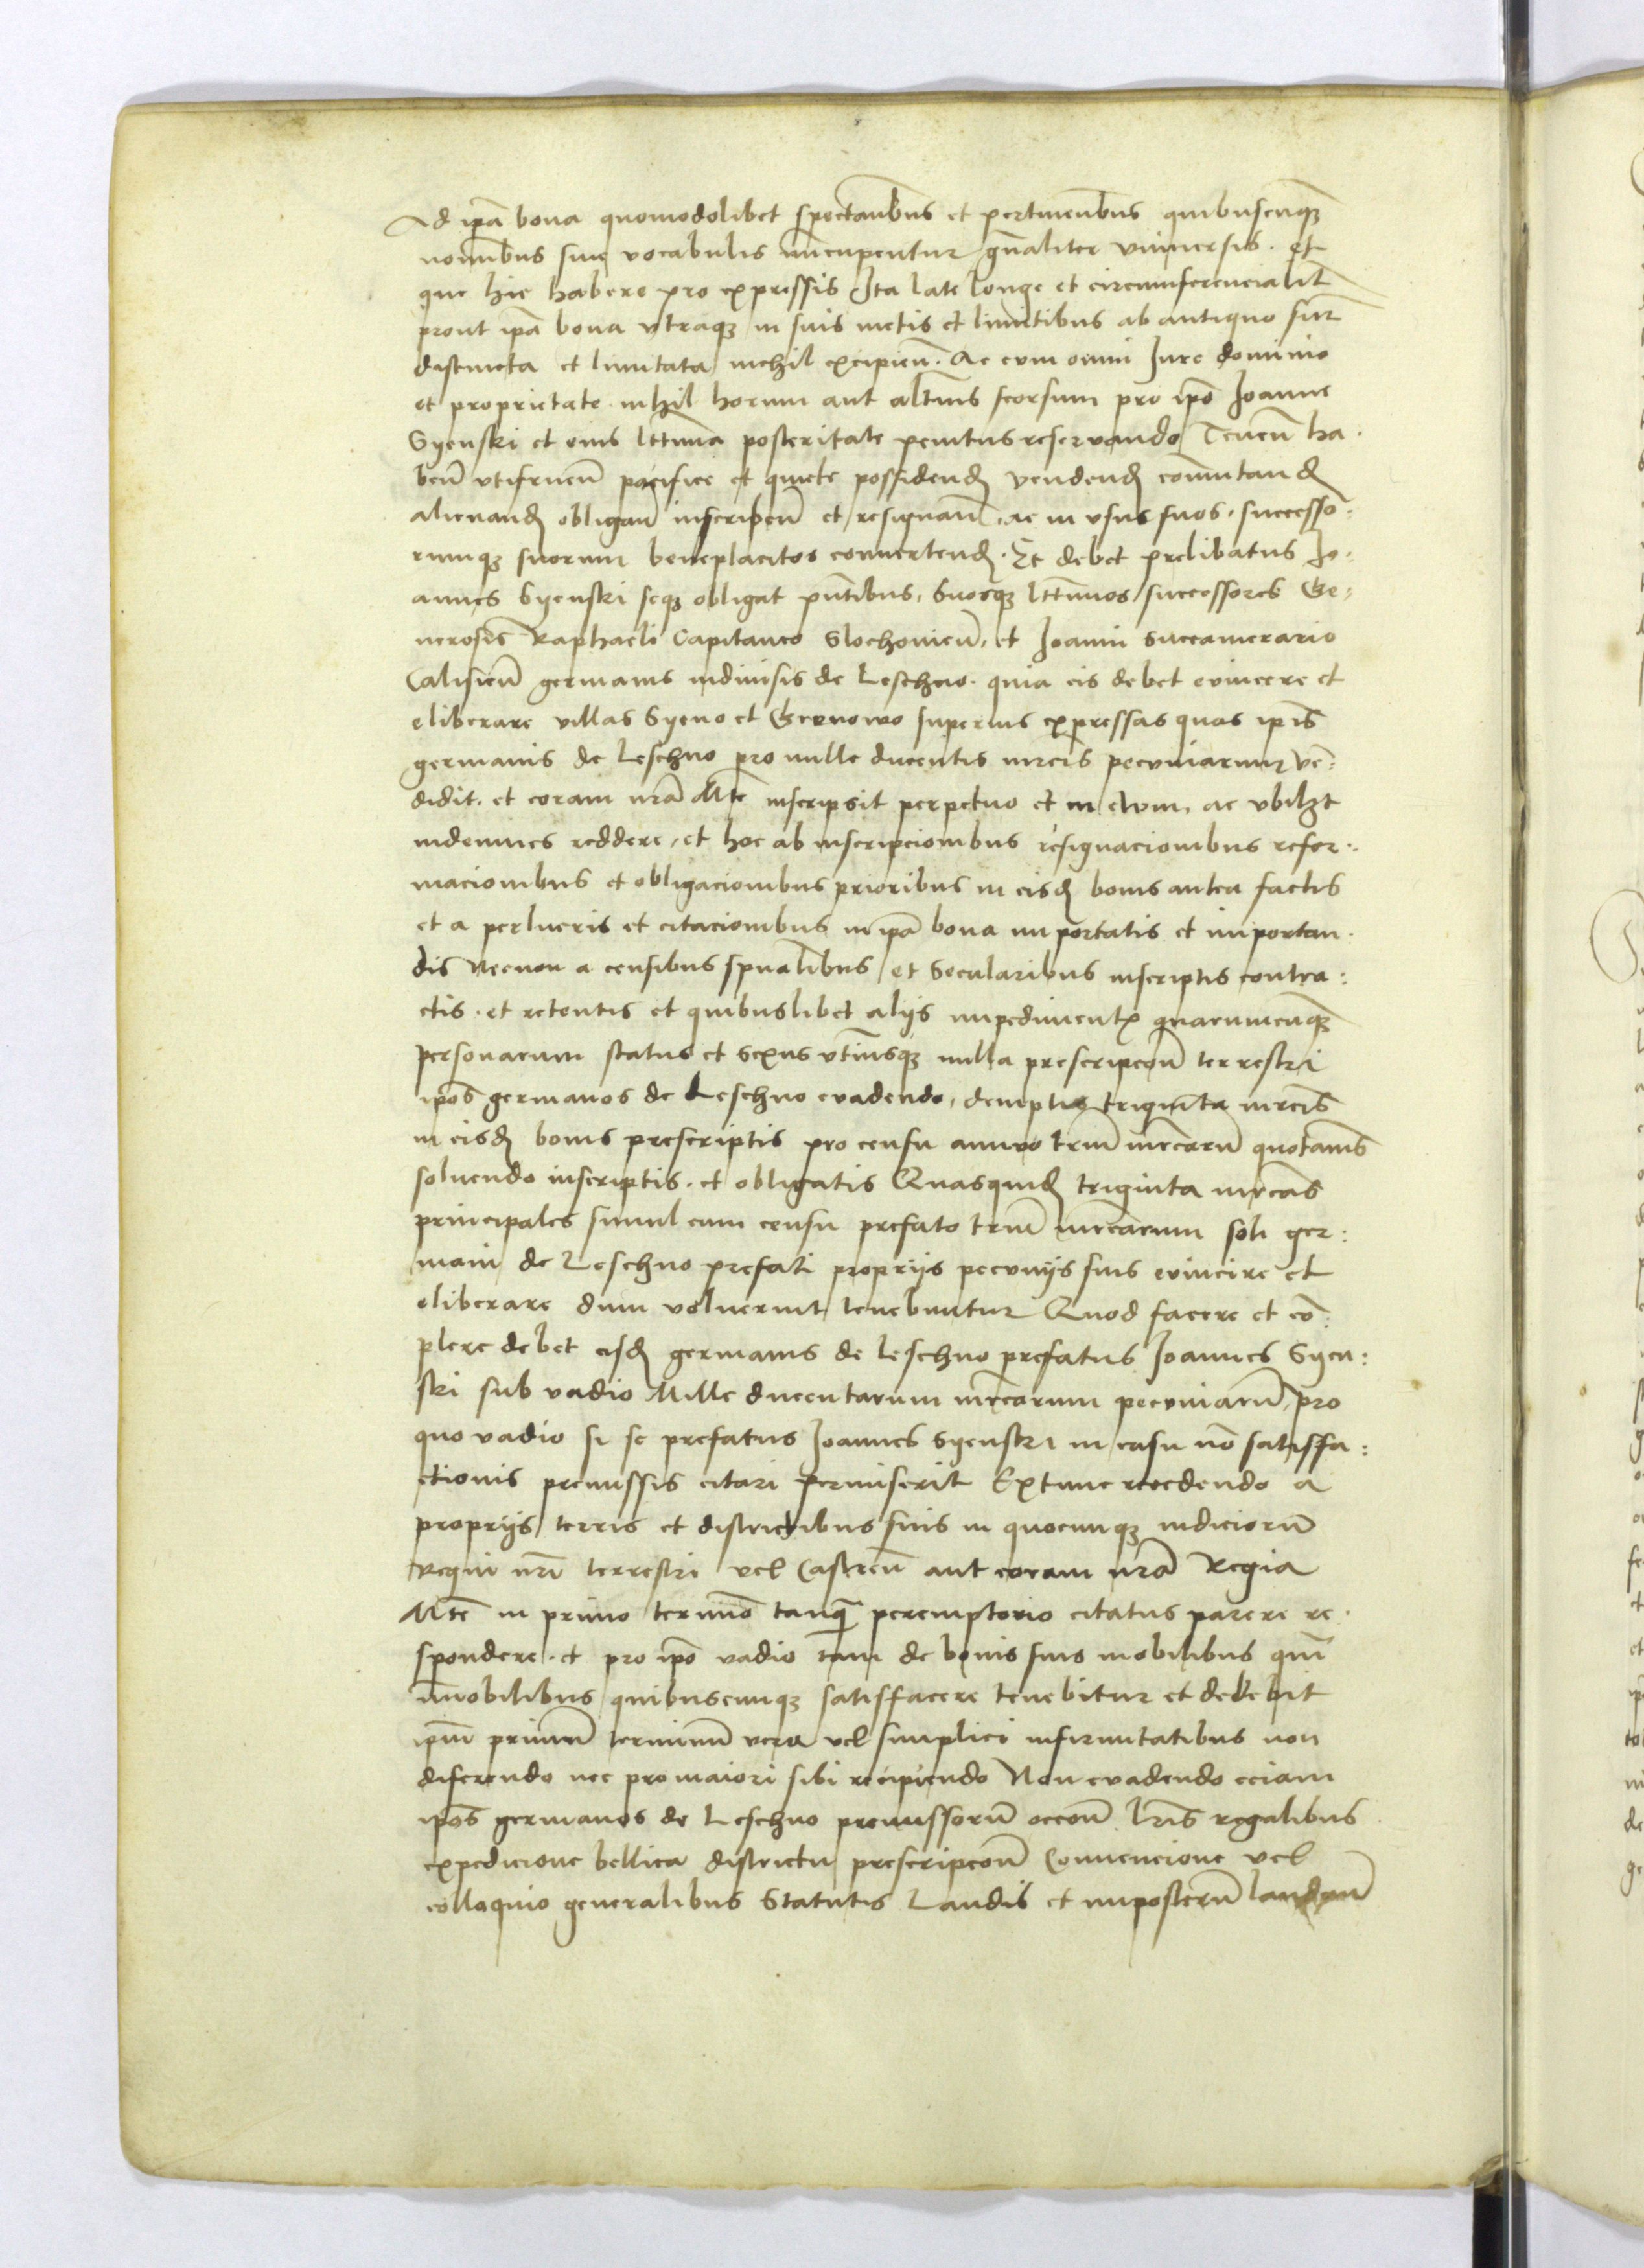 Ad ipā bona quomodolibet spectantibus et pertinentibus quibuscūqȝ
nominibus siue vocabulis nūcupentur gn̄aliter vniuersis. et
que hic habere pro expressis Ita late longe et circumferencialit̄
prout ipā bona vtraqȝ in suis metis et limitibus ab antiquo sūt
distincta et limitata nichil excipien̄. Ac cum omni Iure dominio
et proprietate nihil horum aut alt̄ius seorsum pro ipō Ioanne
Syenski et eius lt̄tima posteritate penitus reservando Tenen̄ ha.
ben̄ vtifruen̄ pacifice et quiete possidend̄ vendend̄ commutand̄
alienand̄ obligan̄ inscriben̄ et resignan̄. ac in vsus suos. successo:
rumqȝ suorum beneplacitos conuertend̄. Et debet prelibatus Io:
annes Syenski seqȝ obligat pn̄tibus, Suosqȝ lt̄timos successores Ge:
nerosis Raphaeli Capitaneo Slochouien̄, et Ioanni Succamerario
Calisien̄ germanis indiuisis de Leschno. quia eis debet euincere et
eliberare villas Syeno et Gronowo superius expressas quas ipīs
germanis de Leschno pro mille ducentis mrcis pecuniarum ve:
didit. et coram nrā Mte inscripsit perpetuo et in ewm, ac vbilȝt
indemnes reddere, et hoc ab inscripcionibus resignacionibus refor:
macionibus et obligacionibus prioribus in eisd̄ bonis antea factis
et a perlucris et citacionibus in ipā bona importatis et importan.
dis Necnon a censibus spūalibus et Secularibus inscriptis contra:
ctis. et retentis et quibuslibet alijs impedimentis quarumcūqȝ
personarum status et sexus vtriusqȝ nulla prescripcōn̄ terrestri
ipōs germanos de Leschno evadendo, demptis triginta mrcis
in eisd̄ bonis prescriptis pro censu annuo triū mrcarū quotannis
soluendo inscriptis. et obligatis Quasquid̄ triginta mrcas
principales simul cum censu prefato triū mrcarum soli ger:
mani de Leschno prefati proprijs pecunijs suis euincire et
eliberare dum voluerint tenebuntur Quod facere et cō:
plere debet eisd̄ germanis de Leschno prefatus Ioannes Syen:
ski sub vadio Mille ducentarum mrcarum pecuniarū, pro
quo vadio si se prefatus Ioannes Syenski in casu nō satisfa:
ctionis premissis citari permiserit Extunc recedendo a
proprijs terris et districtibus suis in quocumqȝ iudiciorū
Regni nrī terrestri vel Castren̄ aut coram nrā Regia
Mte in primo termīo tanqȝ peremptorio citatus parere re.
spondere. et pro ipō vadio tam de bonis suis mobilibus qm̄
īmobilibus quibuscumqȝ satisfacere tenebitur et debebit
ipm̄ primū terminū vera vel simplici infirmitatibus non
diferendo nec pro maiori sibi recipiendo Non evadendo eciam
ipōs germanos de Leschno premissorū occōn̄ lrīs regalibus
expedicione bellica districtu prescripcōn̄ Conuencione vel
colloquio generalibus Statutis Laudis et imposterū laudan̄